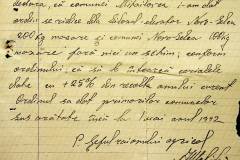 dedora, că comunei Mihăileni i-am dat
ordin se ridice dela Silozul elevator Noro-Selea
200 kg mazare și comunei Noro-Selea 100 kg
mazăre fără nici un schim, conform
ordinului, că să le întoarcă cerialele
date cu +25% din recolta anului curent
Ordinul sa dat primarilor comunelor
sus arătate încă la 1 mai anul 1942
P. Șeful raionului agricol